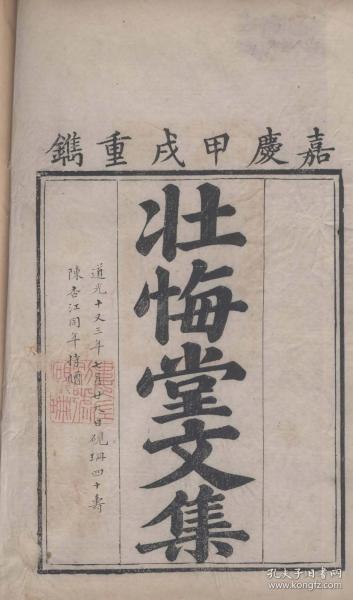 嘉慶甲戌重鐫
壯悔堂文集
道光十又三年七月十八日硯珊四十壽
陳杏江同年持贈
孔夫子旧书网
www.kongfz.com